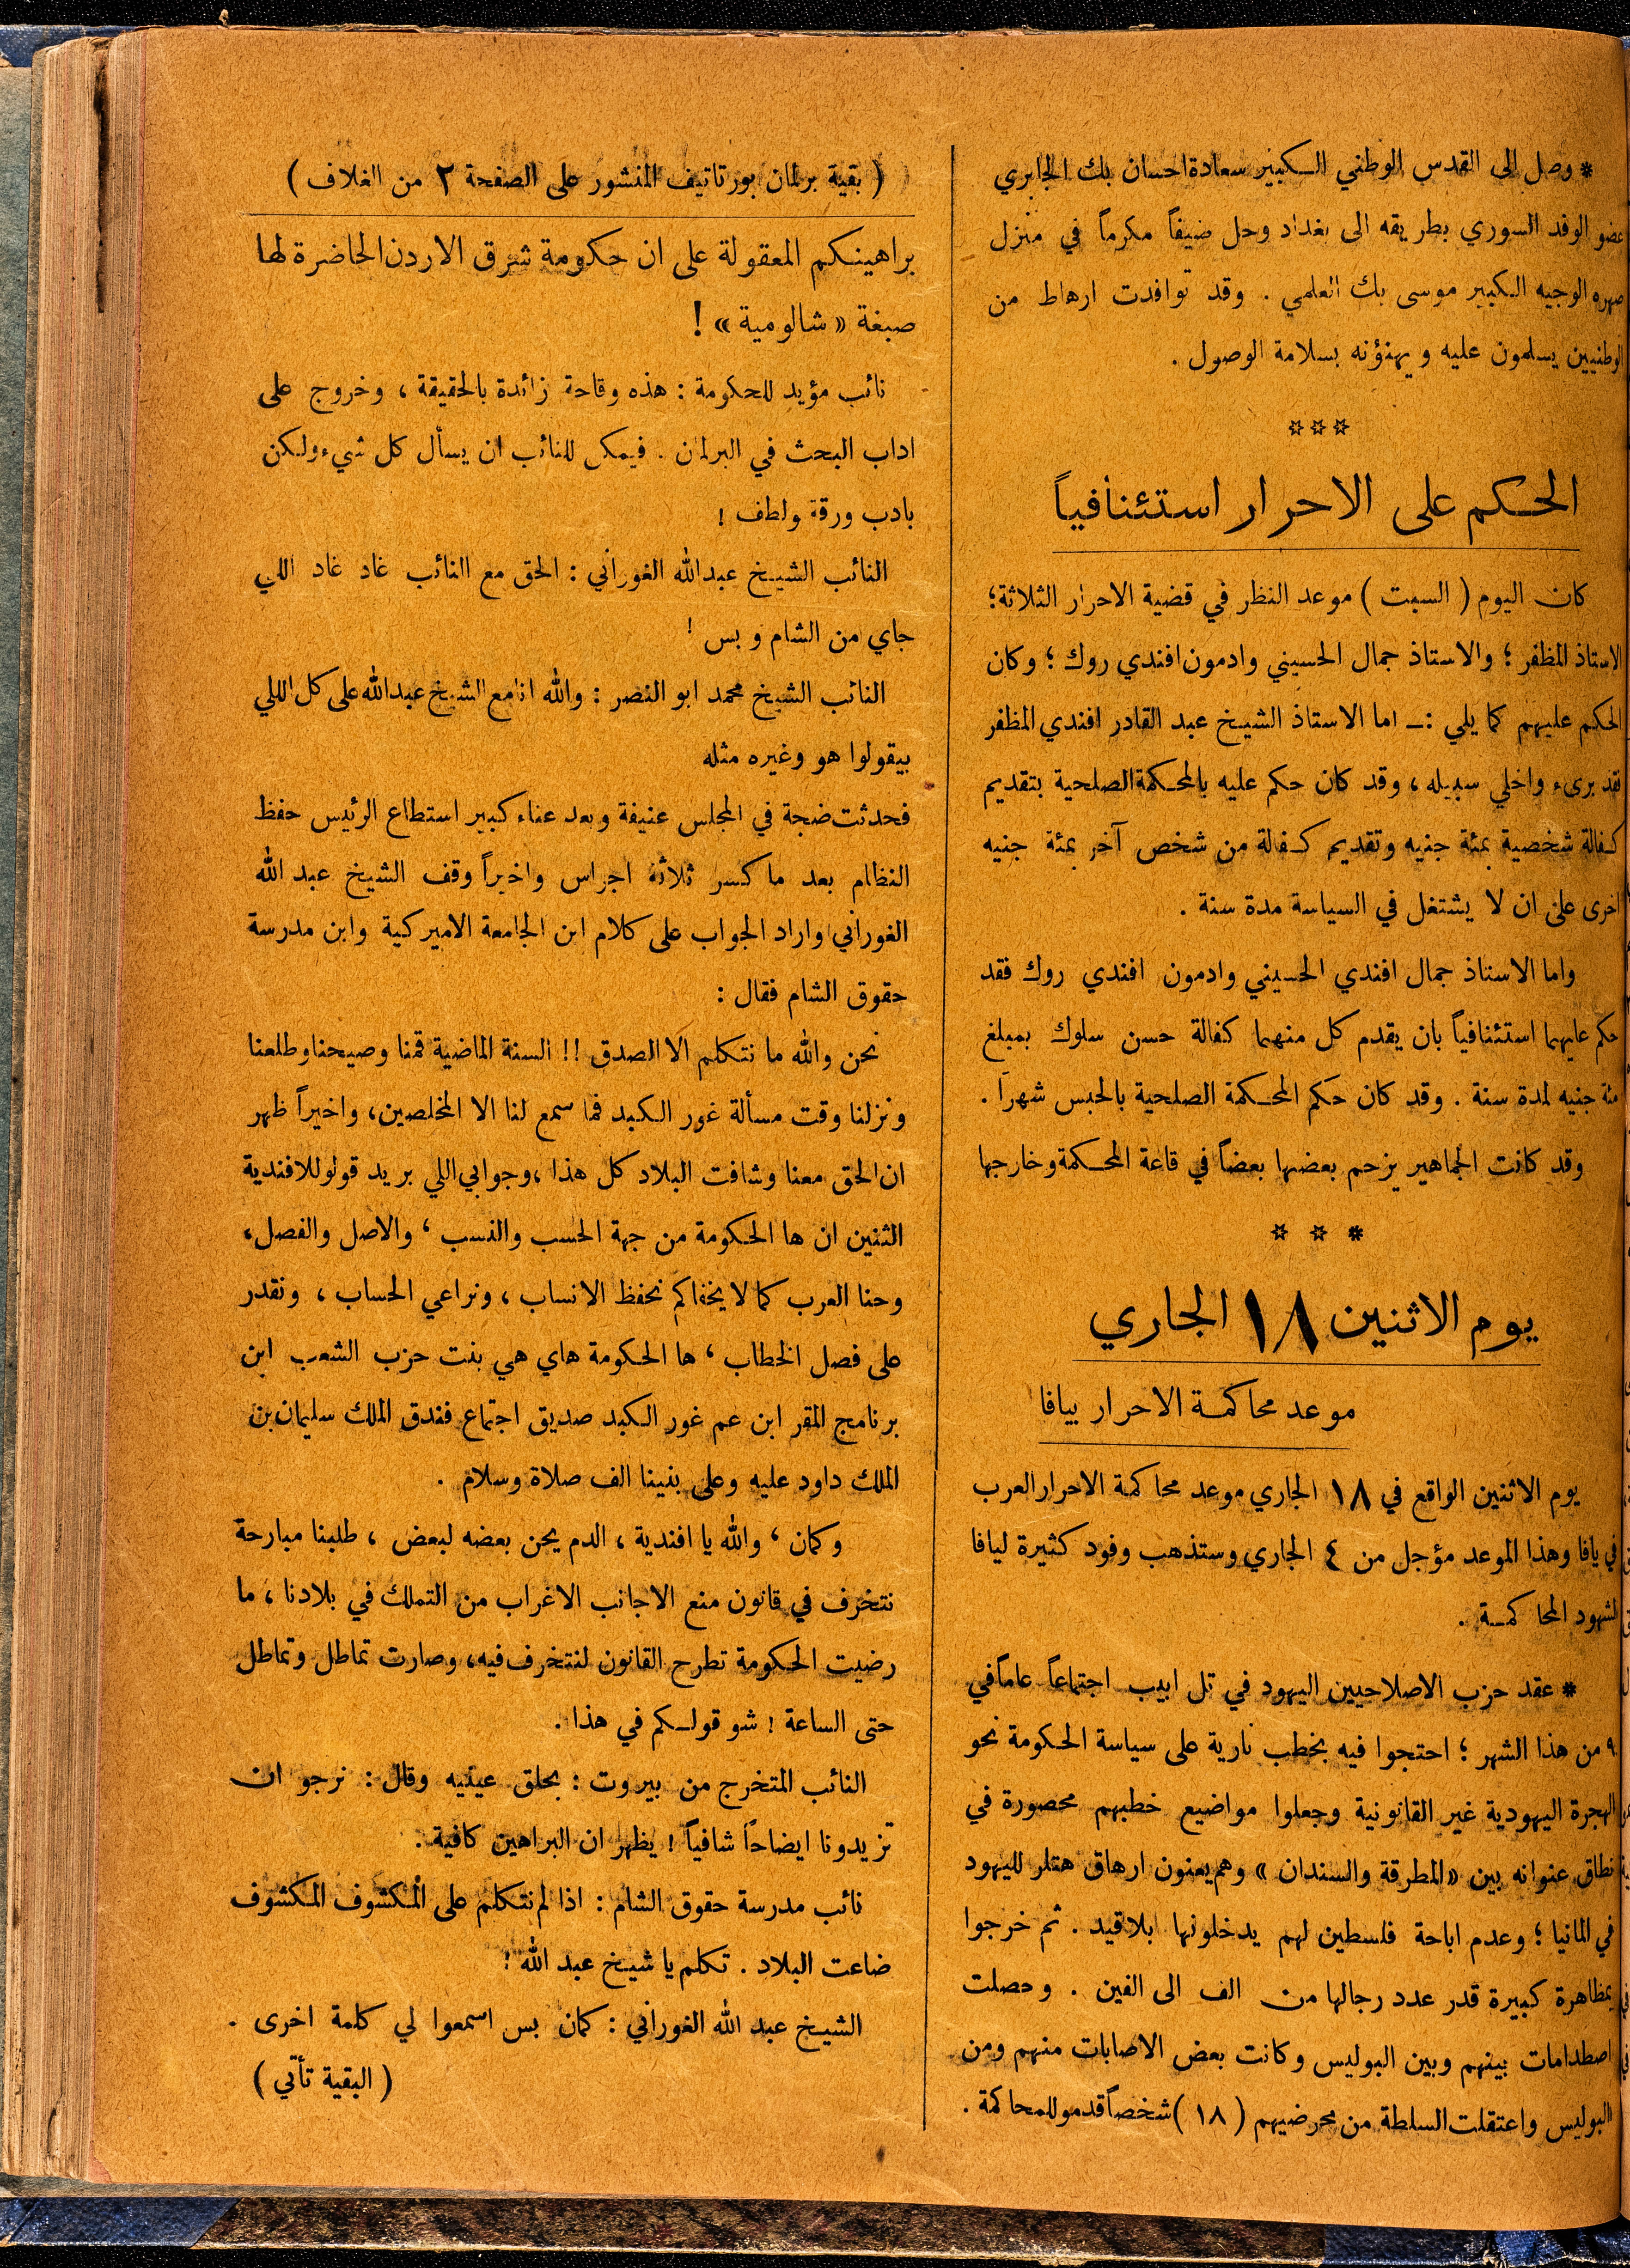 * وصل الى القدس الوطني الكبير سعادة احسان بك الجابري
عضو الوفد السوري بطريقه الى بغداد وحل ضيفاً مكرماً في منزل
صهره الوجيه الكبير موسى بك العلمي . وقد توافدت ارهاط من
الوطنيين يسلمون عليه ويهنؤنه بسلامة الوصول .
☆☆☆
الحكم على الاحرار استئنافياً
كان اليوم ( السبت ) موعد النظر في قضية الاحرار الثلاثة؛
الاستاذ المظفر ؛ والاستاذ جمال الحسيني وادمون افندي روك ؛ وكان
الحكم عليهم كما يلي :ــ اما الاستاذ الشيخ عبد القادر افندي المظفر
فقد برىء واخلي سبيله ، وقد كان حكم عليه بالمحكمة الصلحية بتقديم
كفالة شخصية بمئة جنيه وتقديم كفالة من شخص آخر بمئة جنيه
اخرى على ان لا يشتغل في السياسة مدة سنة .
واما الاستاذ جمال افندي الحسيني وادمون افندي روك فقد
حكم عليهما استئنافياً بان يقدم كل منهما كفالة حسن سلوك بمبلغ
مئة جنيه لمدة سنة . وقد كان حكم المحكمة الصلحية بالحبس شهراً .
وقد كانت الجماهير يزحم بعضها بعضاً في قاعة المحكمة وخارجها
* ☆ ☆
يوم الاثنين ١٨ الجاري
موعد محاكمة الاحرار بيافا
يوم الاثنين الواقع في ١٨ الجاري موعد محاكمة الاحرار العرب
في يافا وهذا الموعد مؤجل من ٤ الجاري وستذهب وفود كثيرة ليافا
لشهود المحاكمة .
* عقد حزب الاصلاحيين اليهود في تل ابيب اجتماعاً عاماً في
٩ من هذا الشهر ؛ احتجوا فيه بخطب نارية على سياسة الحكومة نحو
الهجرة اليهودية غير القانونية وجعلوا مواضيع خطبهم محصورة في
نطاق عنوانه بين «المطرقة والسندان» وهم يعنون ارهاق هتلر لليهود
في المانيا ؛ وعدم اباحة فلسطين لهم يدخلونها بلا قيد . ثم خرجوا
بمظاهرة كبيرة قدر عدد رجالها من الف الى الفين . وحصلت
اصطدامات بينهم وبين البوليس وكانت بعض الاصابات منهم ومن
البوليس واعتقلت السلطة من محرضيهم ( ١٨ ) شخصاً قدموا للمحاكمة .
( بقية برلمان بورتاتيف المنشور على الصفحة ٢ من الغلاف )
براهينكم المعقولة على ان حكومة شرق الاردن الحاضرة لها
صبغة « شالومية » !
نائب مؤيد للحكومة : هذه وقاحة زائدة بالحقيقة ، وخروج على
اداب البحث في البرلمان . فيمكن للنائب ان يسأل كل شيء ولكن
بادب ورقة ولطف !
النائب الشيخ عبدالله الغوراني : الحق مع النائب غاد غاد اللي
جاي من الشام وبس !
النائب الشيخ محمد ابو النصر : والله انا مع الشيخ عبدالله على كل اللي
بيقولوا هو وغيره مثله
فحدثت ضجة في المجلس عنيفة وبعد عناء كبير استطاع الرئيس حفظ
النظام بعد ما كسر ثلاثة اجراس واخيراً وقف الشيخ عبد الله
الغوراني واراد الجواب على كلام ابن الجامعة الاميركية وابن مدرسة
حقوق الشام فقال :
نحن والله ما نتكلم الا الصدق !! السنة الماضية قمنا وصيحنا وطلعنا
ونزلنا وقت مسألة غور الكبد فما سمع لنا الا المخلصين، واخيراً ظهر
ان الحق معنا وشافت البلاد كل هذا ، وجوابي اللي بريد قولو للافندية
الثنين ان ها الحكومة من جهة الحسب والنسب ، والاصل والفصل،
وحنا العرب كما لا يخفاكم نحفظ الانساب ، ونراعي الحساب ، ونقدر
على فصل الخطاب ، ها الحكومة هاي هي بنت حزب الشعب ابن
برنامج المقر ابن عم غور الكبد صديق اجتماع فندق الملك سليمان بن
الملك داود عليه وعلى بنينا الف صلاة وسلام .
وكمان ، والله يا افندية ، الدم يحن بعضه لبعض ، طلبنا مبارحة
نتخرف في قانون منع الاجانب الاغراب من التملك في بلادنا ، ما
رضيت الحكومة تطرح القانون لنتخرف فيه، وصارت تماطل وتماطل
حتى الساعة ! شو قولكم في هذا .
النائب المتخرج من بيروت : بحلق عينيه وقال : نرجو ان
تزيدونا ايضاحاً شافياً ! يظهر ان البراهين كافية .
نائب مدرسة حقوق الشام : اذا لم نتكلم على المكشوف المكشوف
ضاعت البلاد . تكلم يا شيخ عبد الله !
الشيخ عبد الله الغوراني : كمان بس اسمعوا لي كلمة اخرى .
( البقية تأتي )